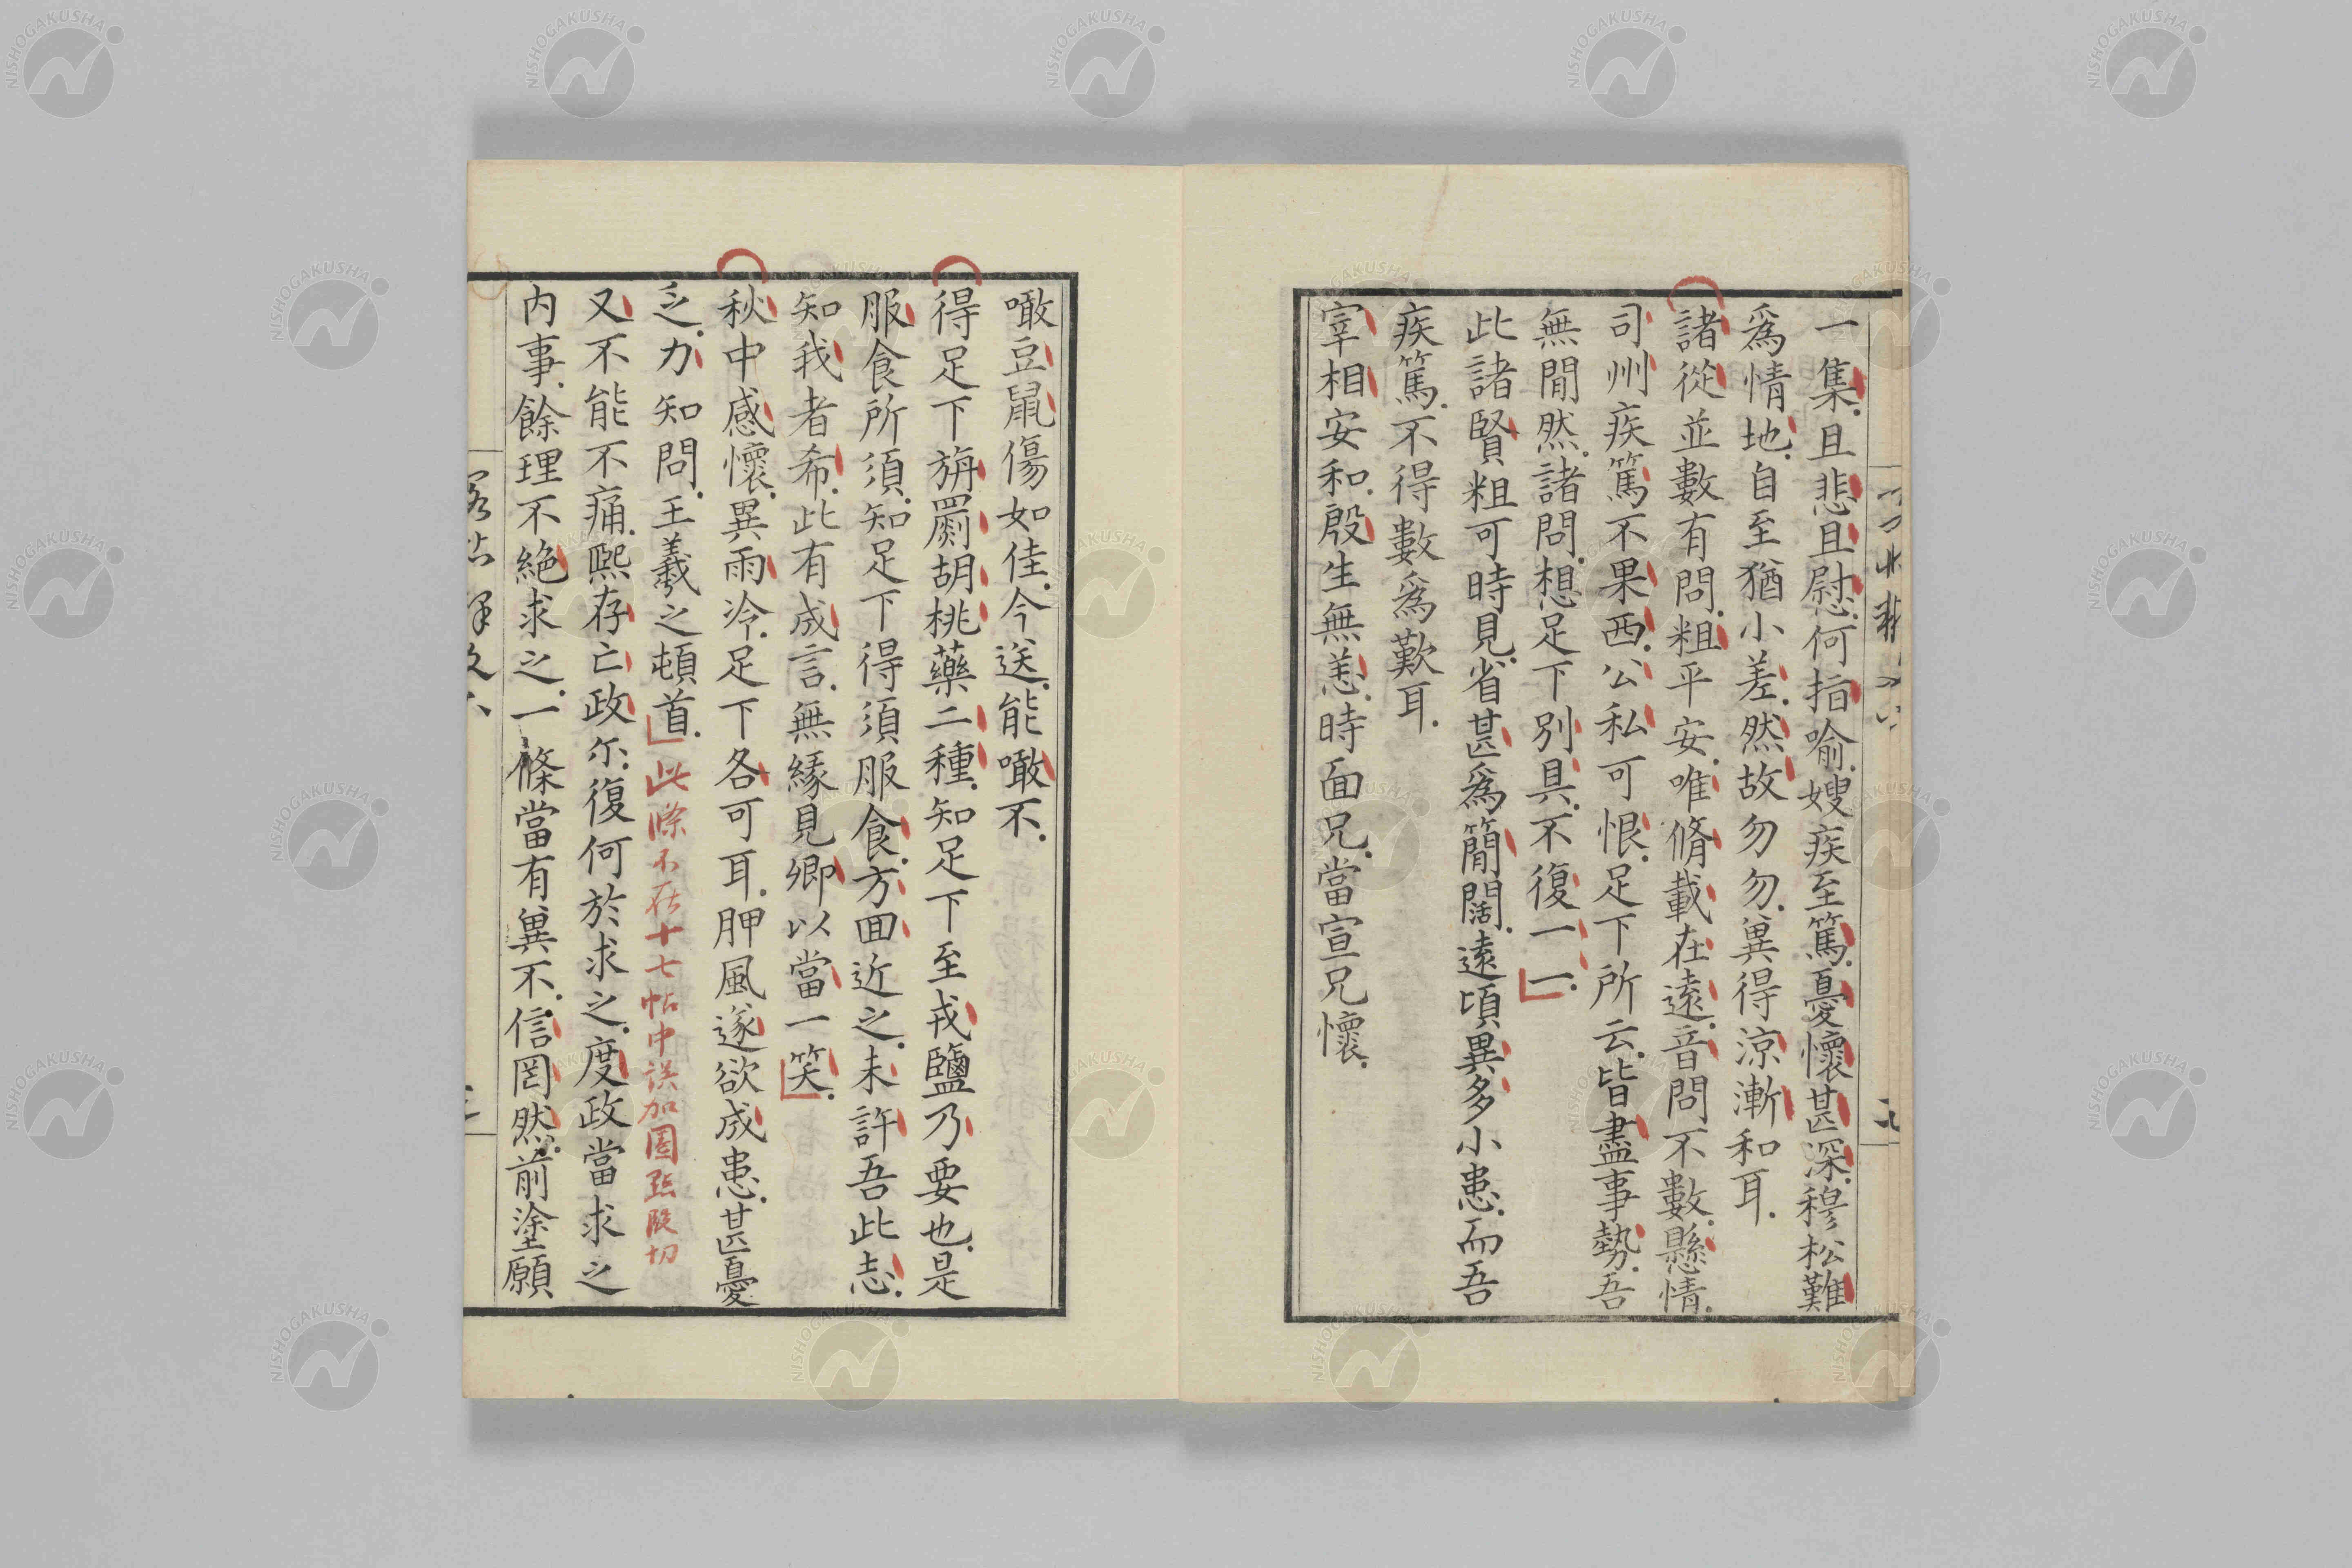 一集且悲且慰何指喻嫂疾至篤憂懷甚深穆松難
爲情地自至猶小差然故勿勿異得涼漸和耳
諸從並數有問粗平安唯脩載在遠音問不數懸情
司州疾篤不果西公私可恨足下所云皆盡事勢吾
無間然諸問想足下別具不復一一
此諸賢粗可時見省甚爲簡闊遠頃異多小患而吾
疾篤不得數爲歎耳
宰相安和殷生無恙時面兄當宣兄懷
噉豆鼠傷如佳今送能噉不
得足下旃罽胡桃藥二種知足下至戎鹽乃要也是
服食所須知足下得須服食方回近之未許吾此志
知我者希此有成言無緣見卿以當一笑
秋中感懷異雨冷足下各可耳胛風遂欲成患甚憂
乏力知問王羲之頓首此條不在十七帖中誤加圈點段切
又不能不痛熙存亡政尓復何於求之度政當求之
內事餘理不絕求之一條當有異不信罔然前塗願